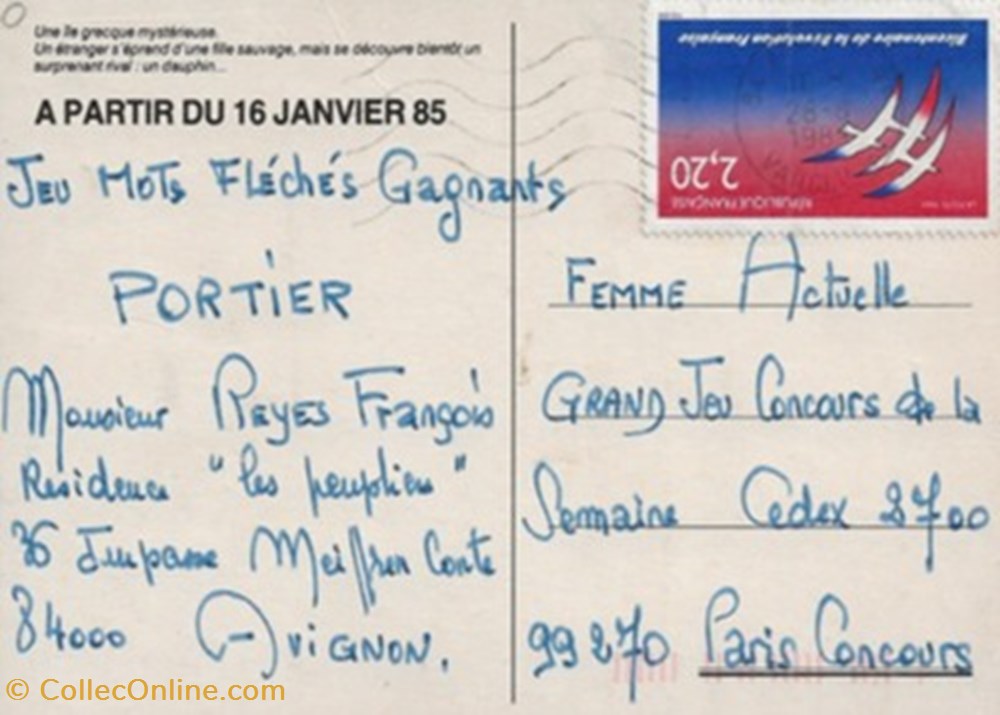 Une île grecque mystérieuse.
Un étranger s'éprend d'une fille sauvage, mais se découvre bientôt un
surprenant rival : un dauphin...
A PARTIR DU 16 JANVIER 85
JEU MOTS FLéCHéS Gagnants
PORTiER
Monsieur REYES François
Residence "les peupliers"
36 Impasse Meiffren Conte
84000 AViGNON.
Bicentenaire de la Révolution Française
2,20
REPUBLIQUE FRANÇAISE
LA POSTE 1989
FEMME Actuelle
GRAND JEU Concours de la
Semaine Cedex 2700
99270 Paris Concours
© CollecOnline.com